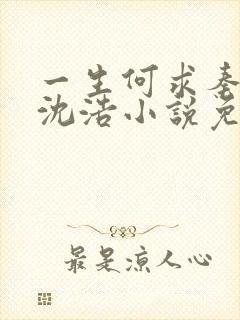 一生何求秦
沈浩小說免
最是凉人心